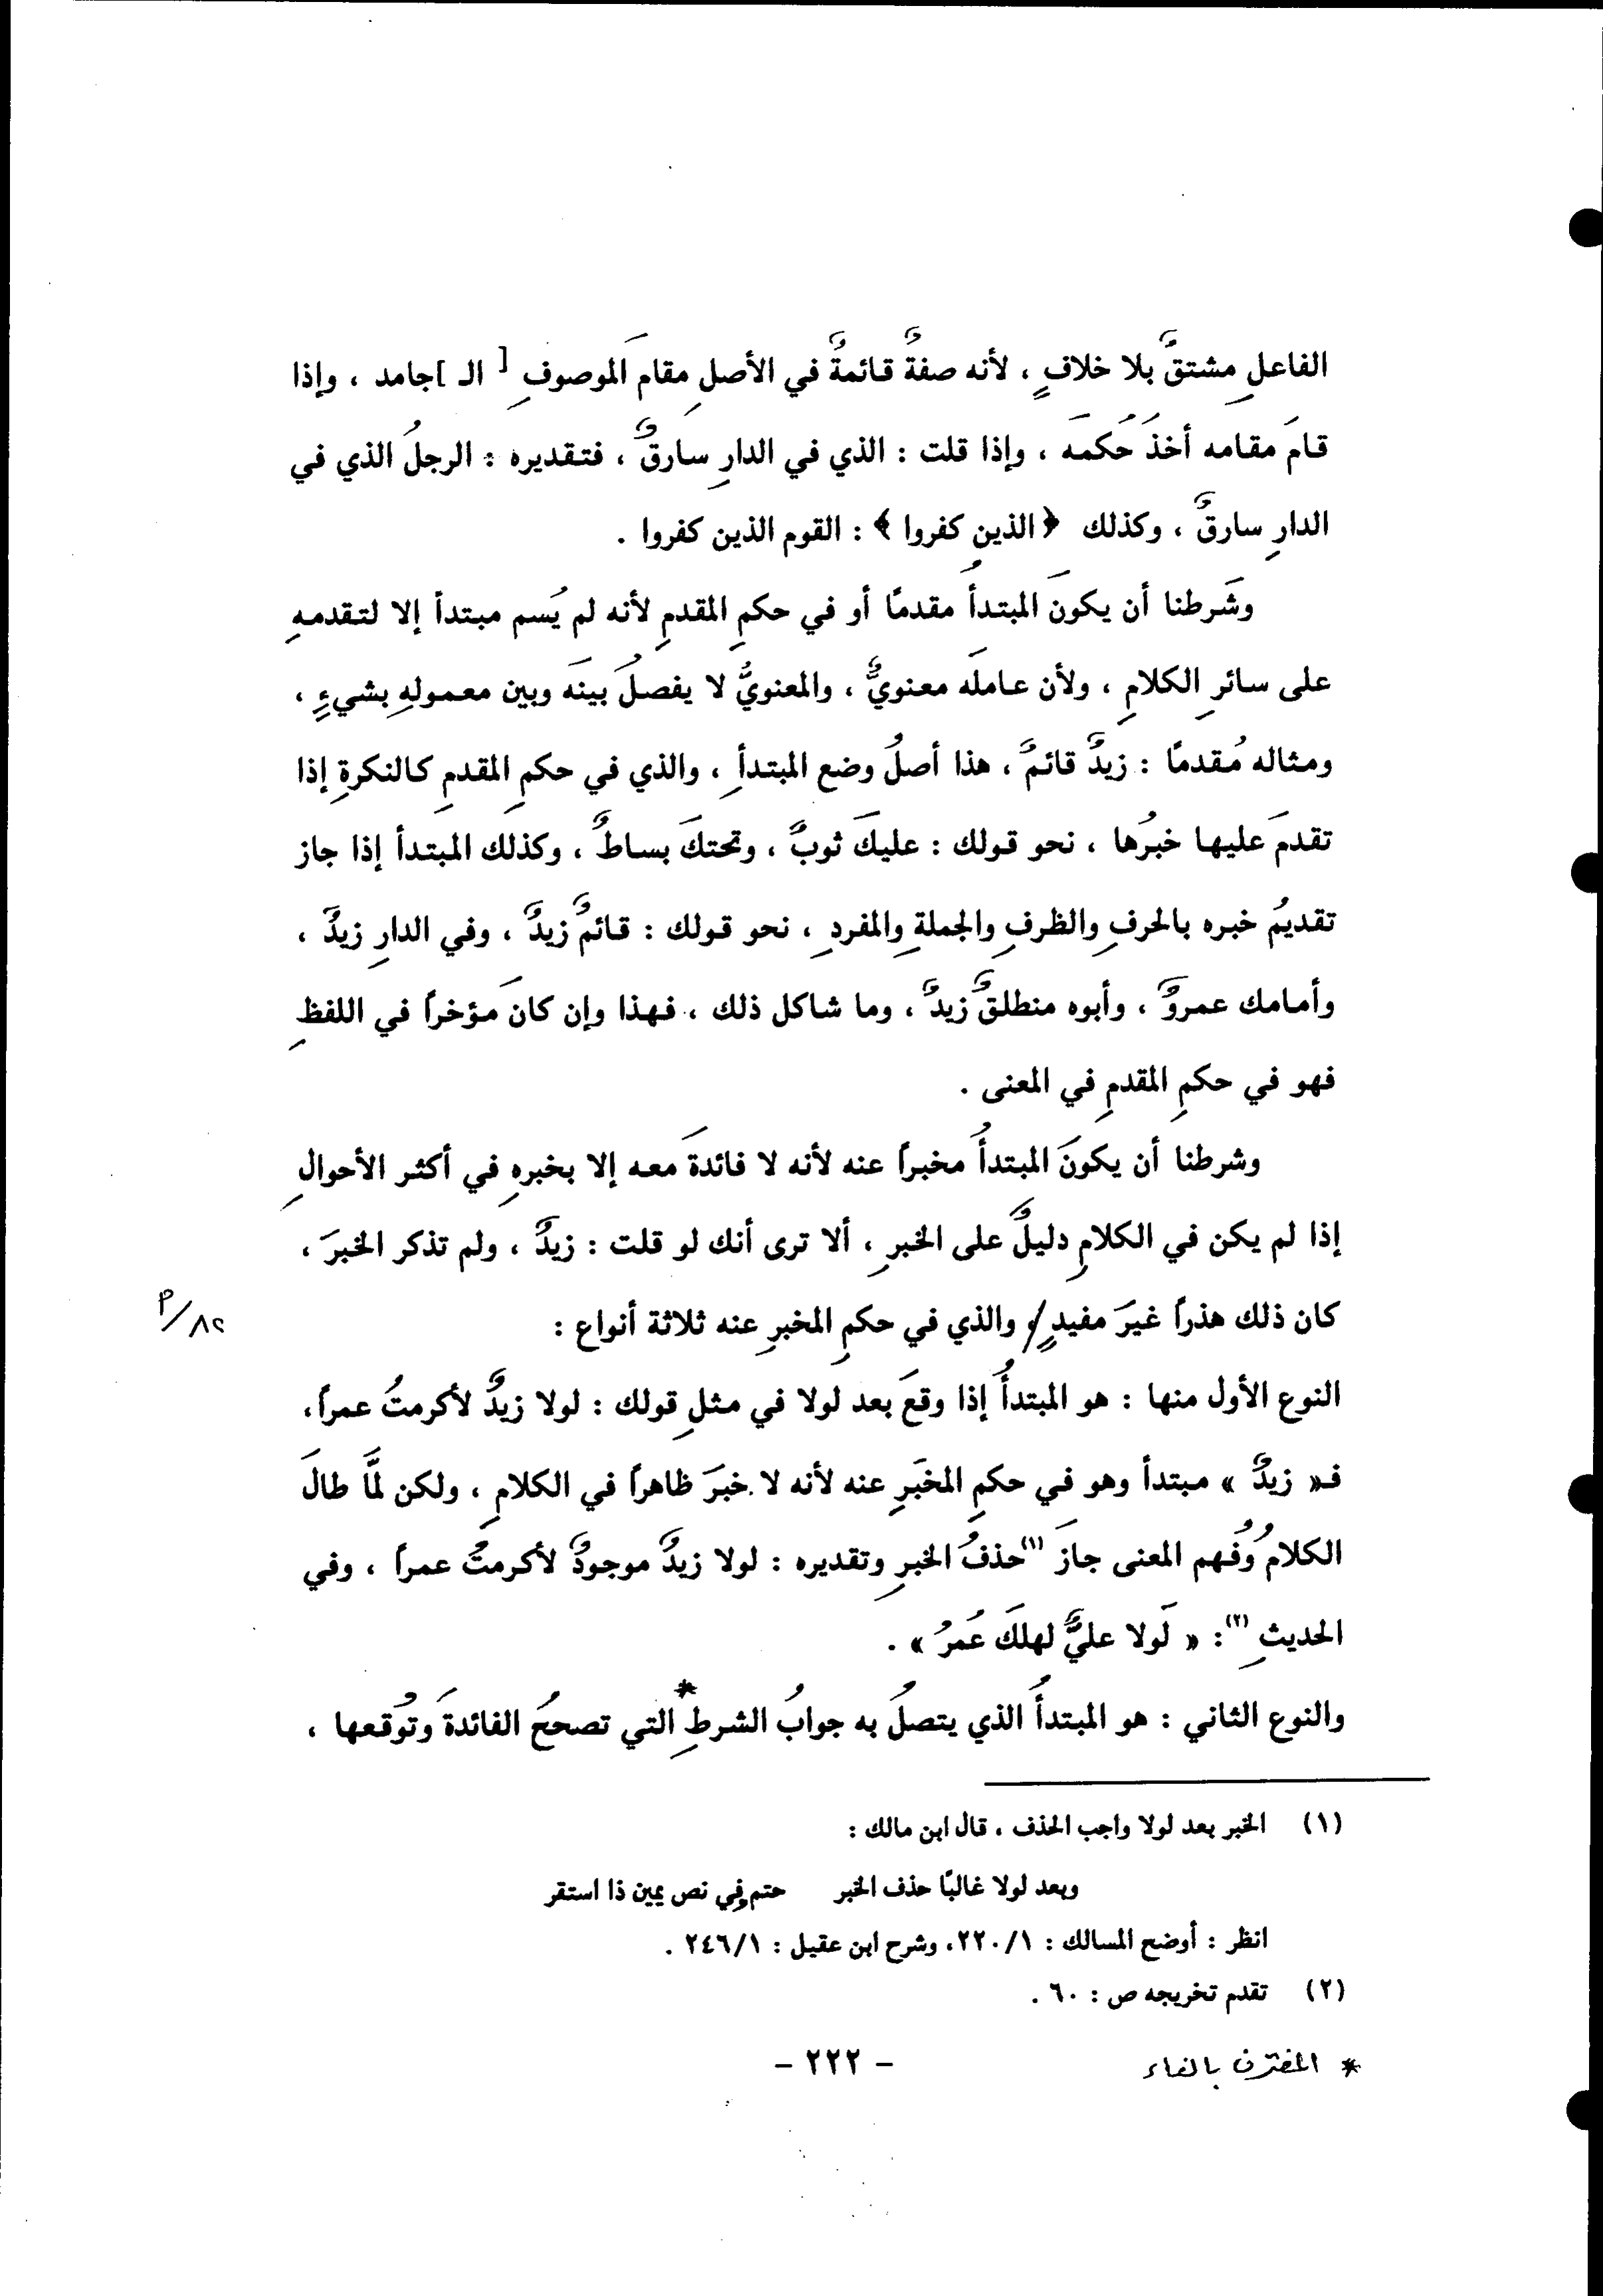 الفاعلِ مشتقٌّ بلا خلافٍ ، لأنه صفةٌ قائمةٌ في الأصلِ مقامَ الموصوفِ [ الـ ]جامد ، وإذا
قامَ مقامه أخذَ حُكمَه ، وإذا قلت : الذي في الدارِ سارقٌ ، فتقديره : الرجلُ الذي في
الدارِ سارقٌ ، وكذلك ﴿ الذين كفروا ﴾ : القوم الذين كفروا .
وشَرطنا أن يكونَ المبتدأُ مقدمًا أو في حكمِ المقدمِ لأنه لم يُسم مبتدأ إلا لتقدمهِ
على سائرِ الكلامِ ، ولأن عاملَه معنويٌّ ، والمعنويُّ لا يفصلُ بينَه وبين معمولهِ بشيءٍ ،
ومثاله مُقدمًا : زيدٌ قائمٌ ، هذا أصلُ وضع المبتدأِ ، والذي في حكمِ المقدمِ كالنكرةِ إذا
تقدمَ عليها خبرُها ، نحو قولك : عليكَ ثوبٌ ، وتحتكَ بساطٌ ، وكذلك المبتدأ إذا جاز
تقديمُ خبره بالحرفِ والظرفِ والجملةِ والمفردِ ، نحو قولك : قائمٌ زيدٌ ، وفي الدارِ زيدٌ ،
وأمامك عمروٌ ، وأبوه منطلقٌ زيدٌ ، وما شاكل ذلك ، فهذا وإن كانَ مؤخراً في اللفظِ
فهو في حكمِ المقدمِ في المعنى .
وشرطنا أن يكونَ المبتدأُ مخبراً عنه لأنه لا فائدةَ معه إلا بخبرهِ في أكثر الأحوالِ
إذا لم يكن في الكلامِ دليلٌ على الخبرِ ، ألا ترى أنك لو قلت : زيدٌ ، ولم تذكر الخبرَ ،
كان ذلك هذراً غيرَ مفيدٍ / ، والذي في حكمِ المخبرِ عنه ثلاثة أنواع :
٨٢/م
النوع الأول منها : هو المبتدأُ إذا وقعَ بعد لولا في مثلِ قولك : لولا زيدٌ لأكرمتُ عمراً ،
فـ« زيدٌ » مبتدأ وهو في حكمِ المخبَرِ عنه لأنه لا خبرَ ظاهراً في الكلامِ ، ولكن لمَّا طالَ
الكلامُ وفُهم المعنى جازَ (١) حذفُ الخبرِ وتقديره : لولا زيدٌ موجودٌ لأكرمتُ عمراً ، وفي
الحديثِ (٢) : « لَولا عليٌّ لهلكَ عُمرُ » .
والنوع الثاني : هو المبتدأُ الذي يتصلُ به جوابُ الشرطِ * التي تصححُ الفائدةَ وتُوقعها ،
(١) الخبر بعد لولا واجب الحذف ، قال ابن مالك :
وبعد لولا غالبًا حذف الخبر حتم وفي نص يمين ذا استقر
انظر : أوضح المسالك : ٢٢٠/١ ، وشرح ابن عقيل : ٢٤٦/١ .
(٢) تقدم تخريجه ص : ٦٠ .
* المقترن بالفاء
- ٢٢٢ -